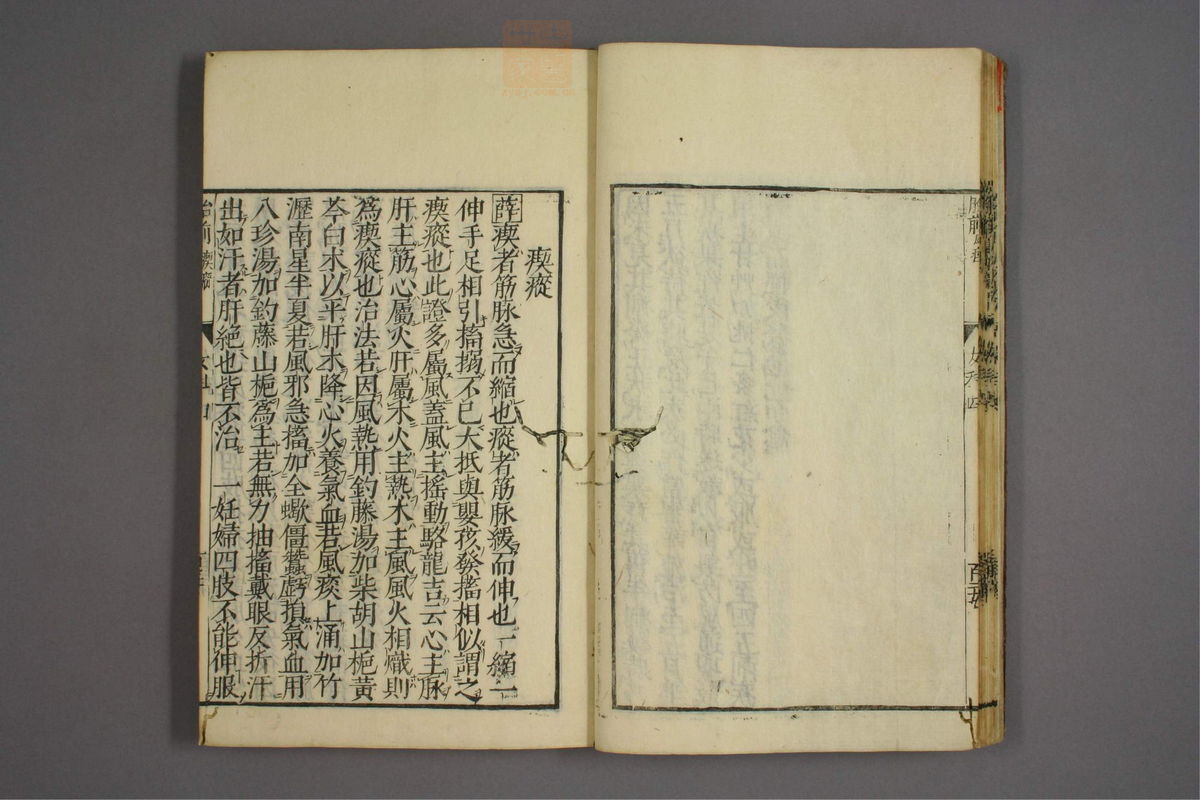 瘈瘲
薛瘈者筋脉急而縮也瘲者筋脉緩而伸也一縮一
伸手足相引搐搦不已大抵與嬰孩發搐相似謂之
瘈瘲也此證多屬風蓋風主搖動駱龍吉云心主脉
肝主筋心屬火肝屬木火主熱木主風風火相熾則
為瘈瘲也治法若因風熱用釣藤湯加柴胡山梔黃
芩白朮以平肝木降心火養氣血若風痰上涌加竹
瀝南星半夏若風邪急搐加全蠍僵蠶虧損氣血用
八珍湯加釣藤山梔為主若無力抽搐戴眼反折汗
出如汗者肝絕也皆不治 一妊婦四肢不能伸服
胎前 瘈瘲
女科四